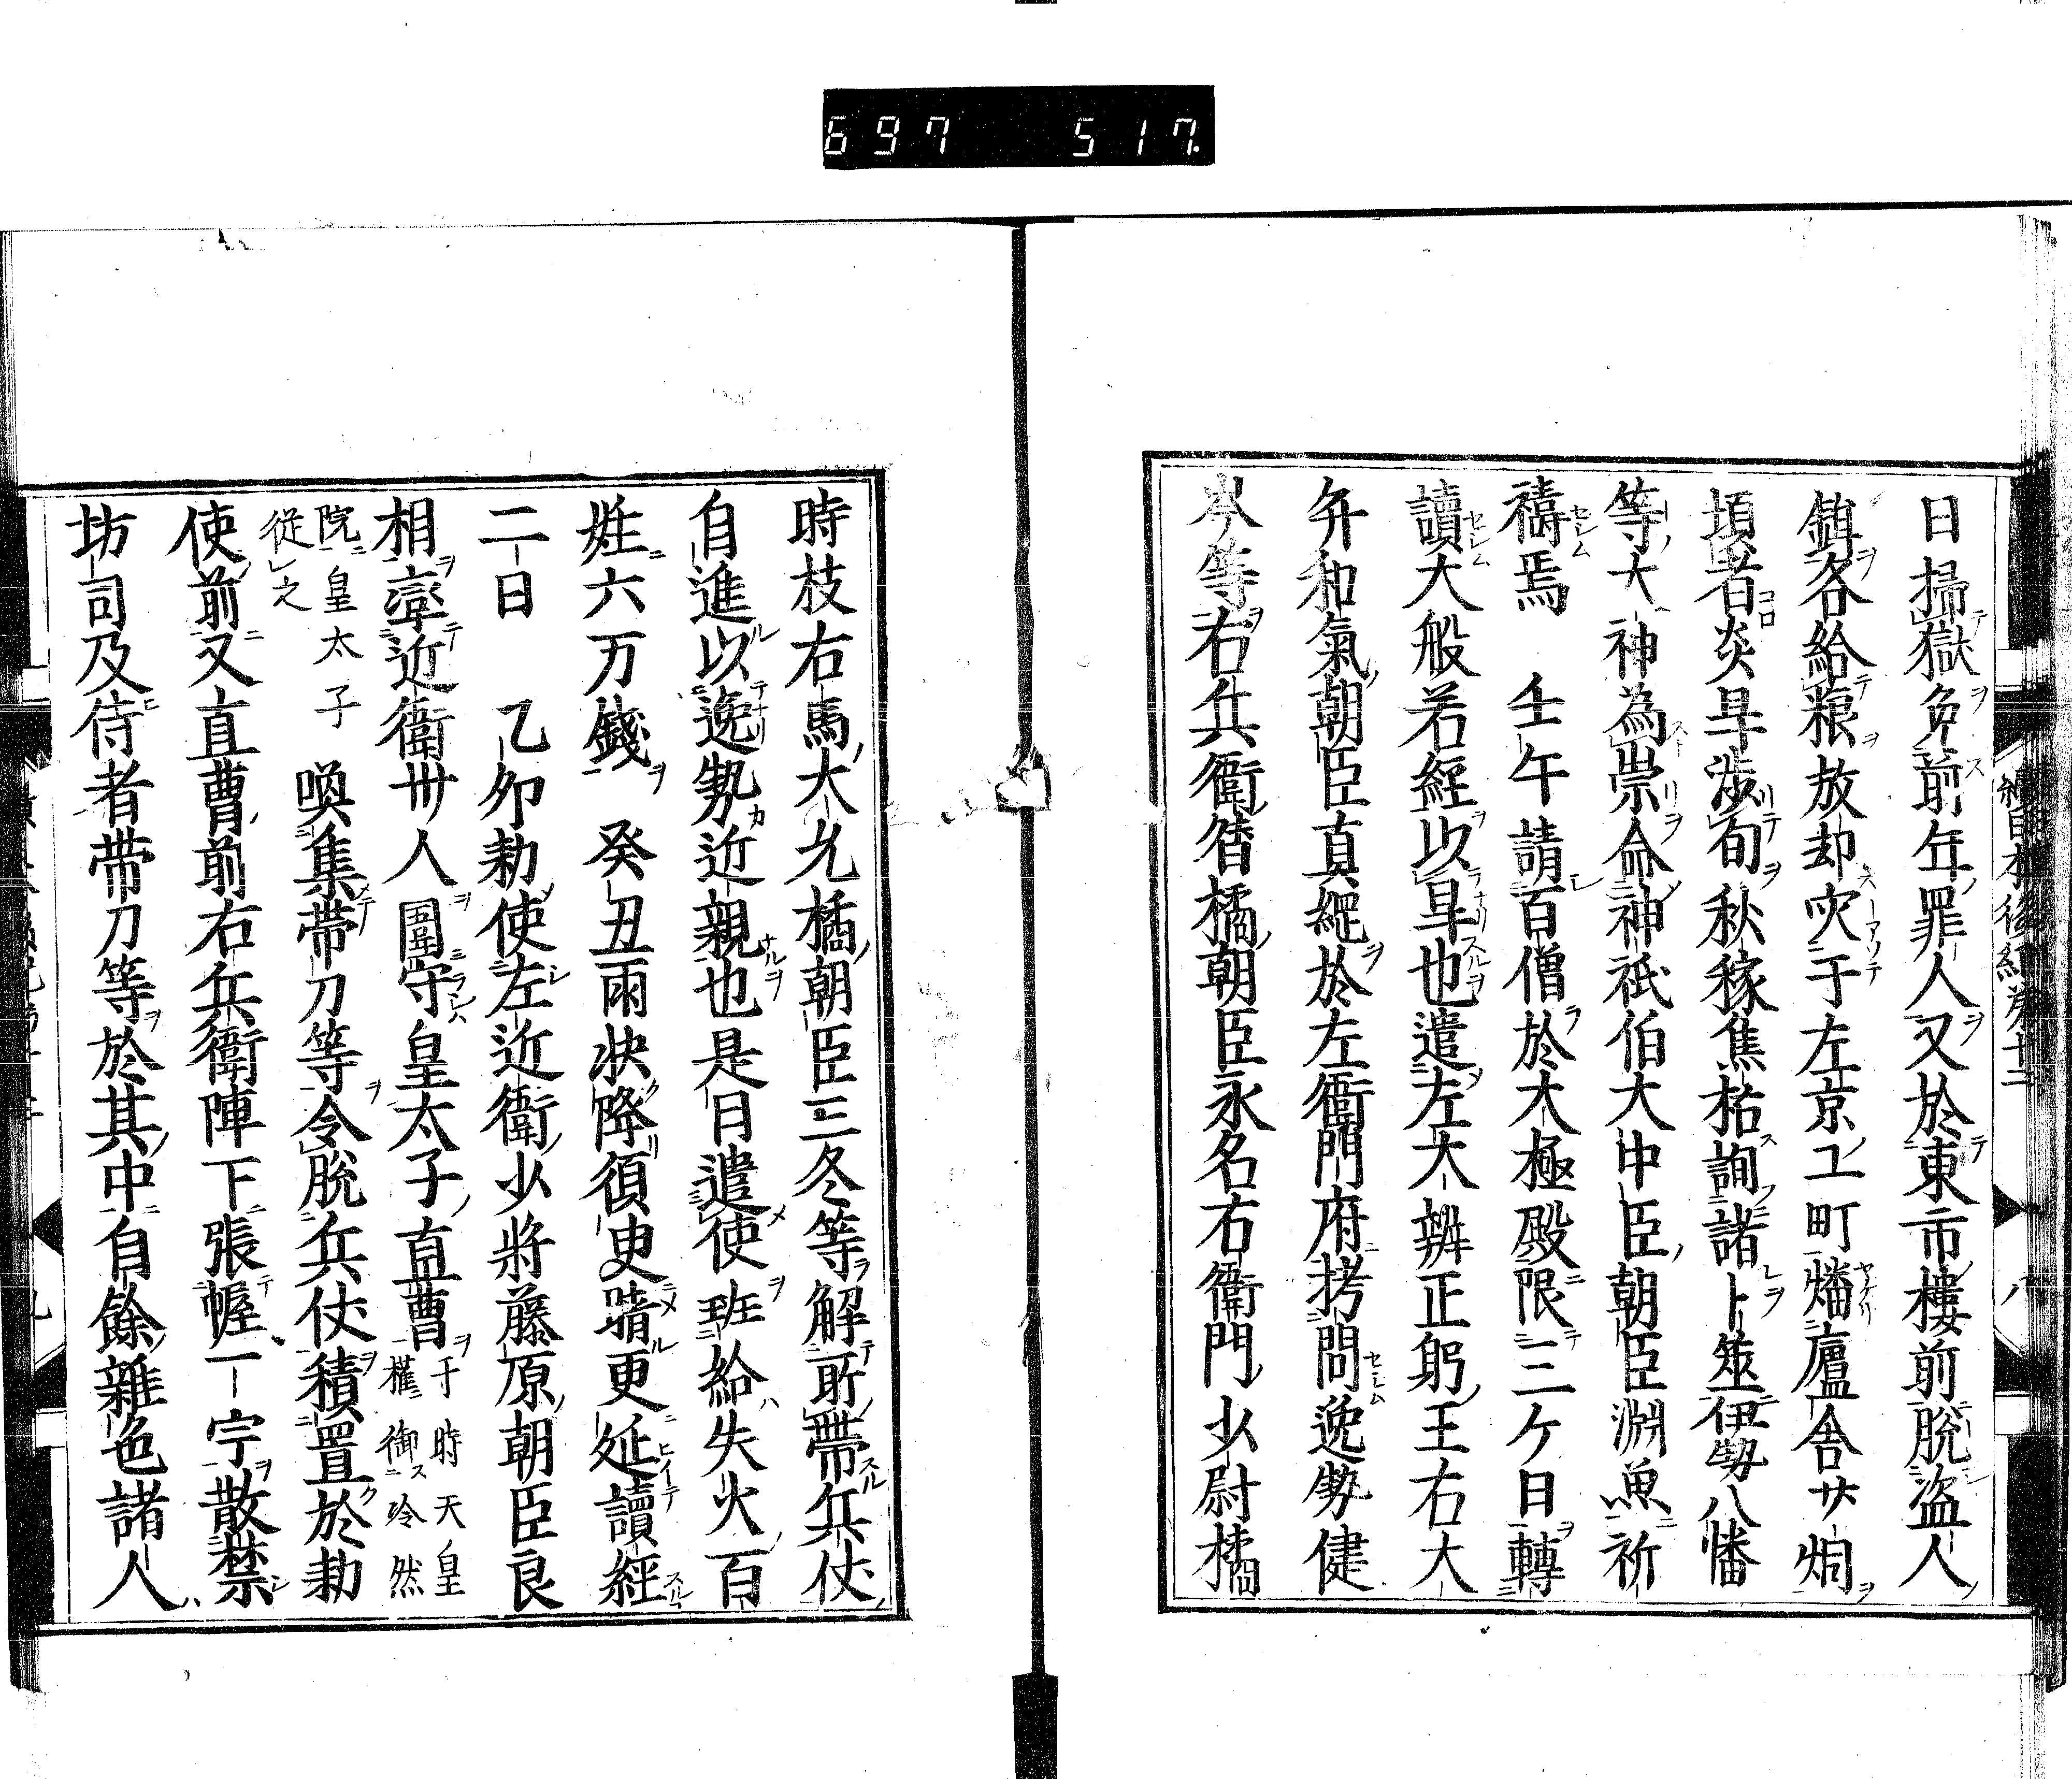 697 517.
續日本後紀卷十二
八
日掃獄免前年罪人又於東市樓前脫盜人
鉗各給粮放却灾于左京工町燔廬舍廿烟
頃者炎旱渉旬秋稼焦枯詢諸卜筮伊勢八幡
等大神為崇命神祇伯大中臣朝臣淵魚祈
禱焉 壬午請百僧於大極殿限三ケ日轉
讀大般若經以旱也遣左大辨正躬王右大
弁和氣朝臣真綱於左衛門府拷問逸勢健
岑等右兵衛督橘朝臣永名右衛門少尉橘
時枝右馬大允橘朝臣三冬等解所帶兵仗
自進以逸勢近親也是日遣使班給失火百
姓六万錢 癸丑雨快降須臾晴更延讀經
二日 乙夘勅使左近衛少将藤原朝臣良
相率近衛卅人圍守皇太子直曹于時天皇權御冷然
院皇太子從之 喚集帶刀等令脫兵仗積置於勅
使前又直曹前右兵衛陣下張幄一宇散禁
坊司及侍者帶刀等於其中自餘雜色諸人
九